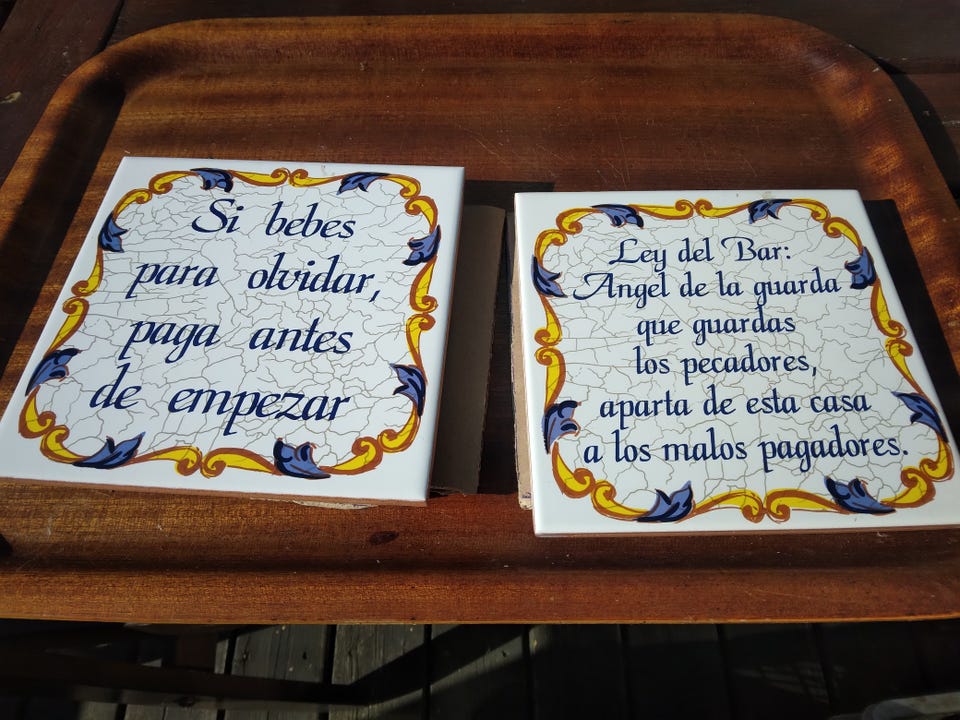 Si bebes
para olvidar,
paga antes
de empezar
Ley del Bar:
Angel de la guarda
que guardas
los pecadores,
aparta de esta casa
a los malos pagadores.